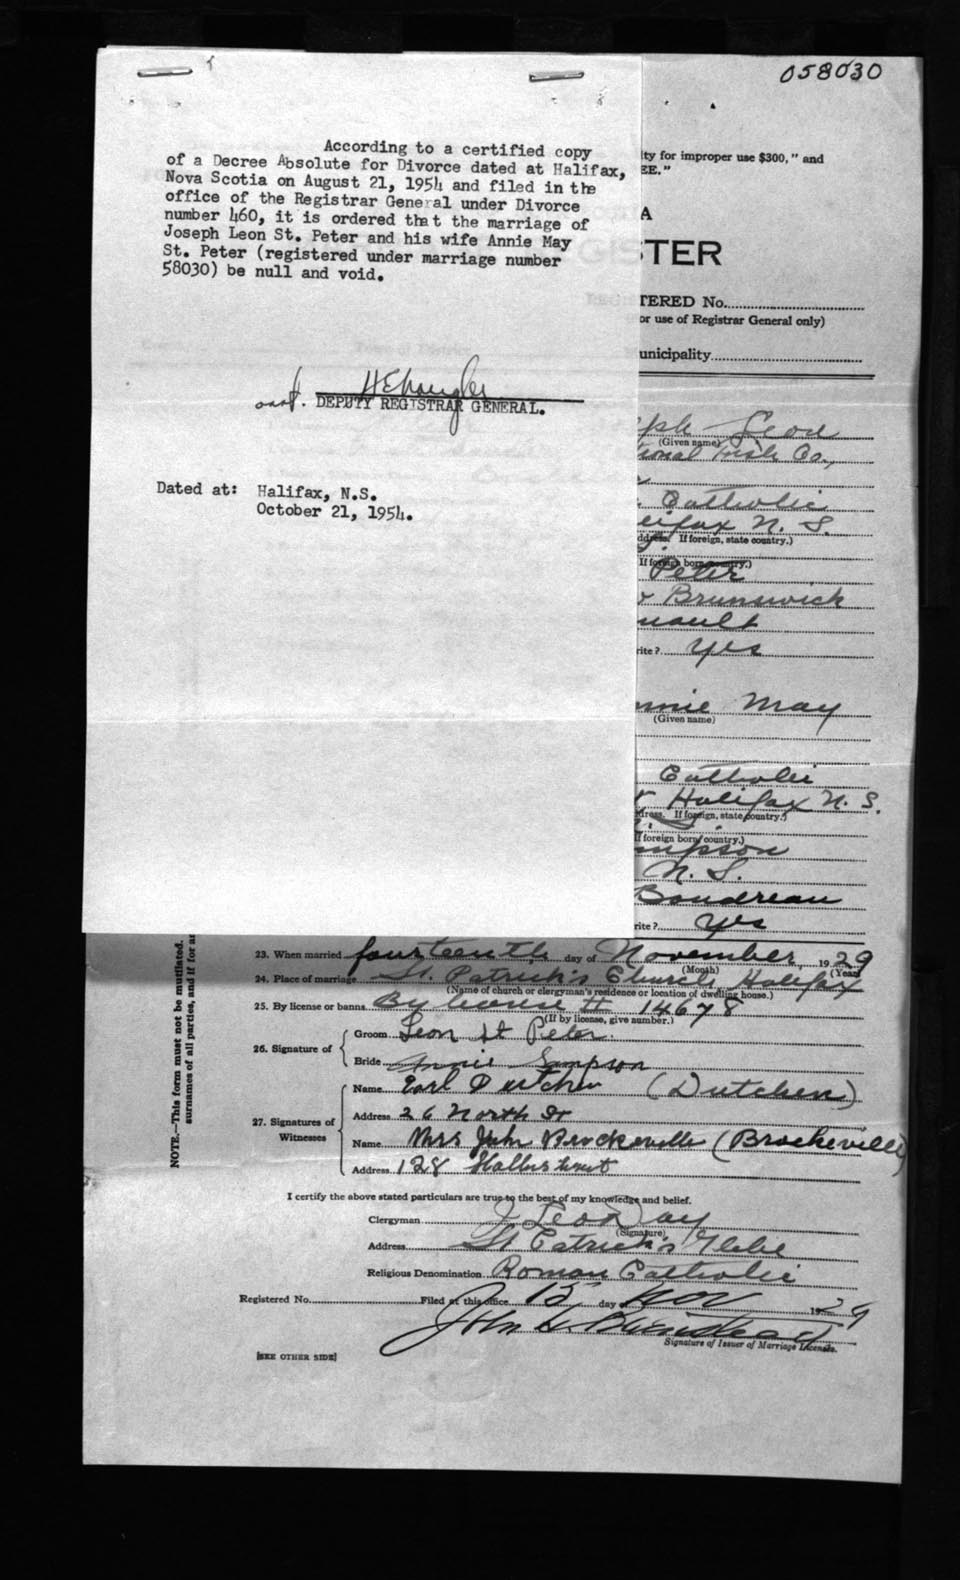 058030
According to a certified copy
of a Decree Absolute for Divorce dated at Halifax,
Nova Scotia on August 21, 1954 and filed in the
office of the Registrar General under Divorce
number 460, it is ordered that the marriage of
Joseph Leon St. Peter and his wife Annie May
St. Peter (registered under marriage number
58030) be null and void.
DEPUTY REGISTRAR GENERAL.
Dated at: Halifax, N.S.
October 21, 1954.
ity for improper use $300," and
EE."
A
STER
TERED No.
or use of Registrar General only)
unicipality
eph Leon
(Given name)
tional Fish Co.,
Catholic
lifax N. S.
ddress. If foreign, state country.)
If foreign born country.)
Peter
w Brunswick
nault
rite? yes
nnie May
(Given name)
Catholic
Halifax N. S.
dress. If foreign, state country.)
If foreign born country.)
mpson
N. S.
Boudreau
rite? yes
NOTE.—This form must not be mutilated.
surnames of all parties, and if for an
23. When married fourteenth day of November, 1929
(Month) (Year)
24. Place of marriage St. Patrick's Church, Halifax
(Name of church or clergyman's residence or location of dwelling house.)
25. By license or banns By license # 14678
(If by license, give number.)
26. Signature of
Groom Leon St Peter
Bride Annie Simpson
27. Signatures of Witnesses
Name Earl Dutchen (Dutchen)
Address 26 North St
Name Mrs John Brockeville (Brockeville)
Address 128 Hollis Street
I certify the above stated particulars are true to the best of my knowledge and belief.
Clergyman J Leo Day
(Signature)
Address St Patrick's Glebe
Religious Denomination Roman Catholic
Registered No. Filed at this office 15 day Nov 1929
John
Signature of Issuer of Marriage Licenses.
[SEE OTHER SIDE]